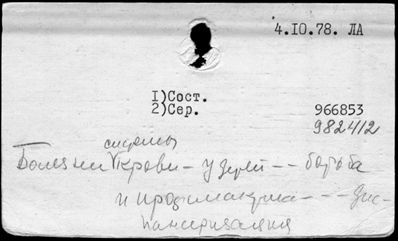 4.IO.78. ЛА
I)Сост.
2)Сер.
966853
982412
системы
Болезни крови - у детей -- борьба
и профилактика --- дис-
пансеризация